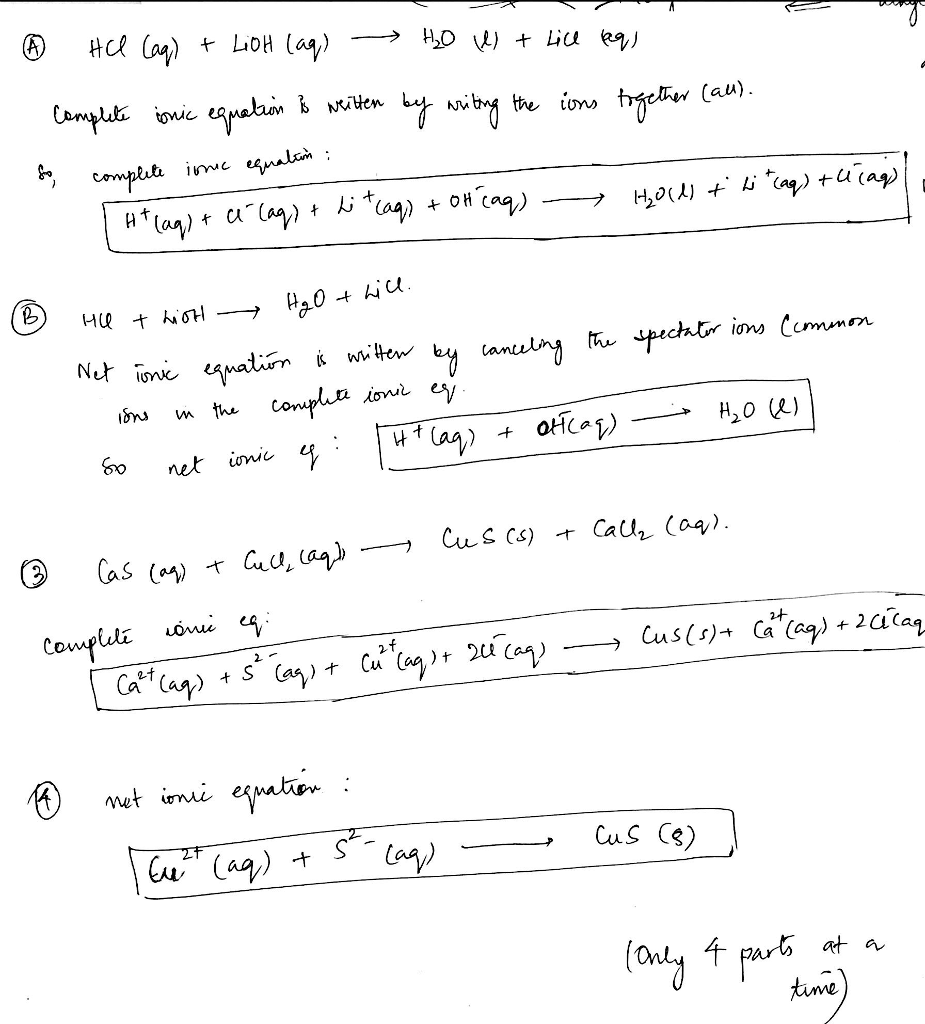 Ⓐ HCl (aq) + LiOH (aq) → H₂O (l) + LiCl (aq)
Complete ionic equation is written by writing the ions together (all).
So, complete ionic equation :
H⁺(aq) + Cl⁻(aq) + Li⁺(aq) + OH⁻(aq) → H₂O(l) + Li⁺(aq) + Cl⁻(aq)
Ⓑ HCl + LiOH → H₂O + LiCl.
Net ionic equation is written by canceling the spectator ions (common
ions in the complete ionic eq.
So net ionic eq : H⁺(aq) + OH⁻(aq) → H₂O (l)
③ CaS (aq) + CuCl₂ (aq) → CuS (s) + CaCl₂ (aq).
Complete ionic eq:
Ca²⁺(aq) + S²⁻(aq) + Cu²⁺(aq) + 2Cl⁻(aq) → CuS(s) + Ca²⁺(aq) + 2Cl⁻(aq
④ net ionic equation :
Cu²⁺ (aq) + S²⁻ (aq) → CuS (s)
(Only 4 parts at a
time)